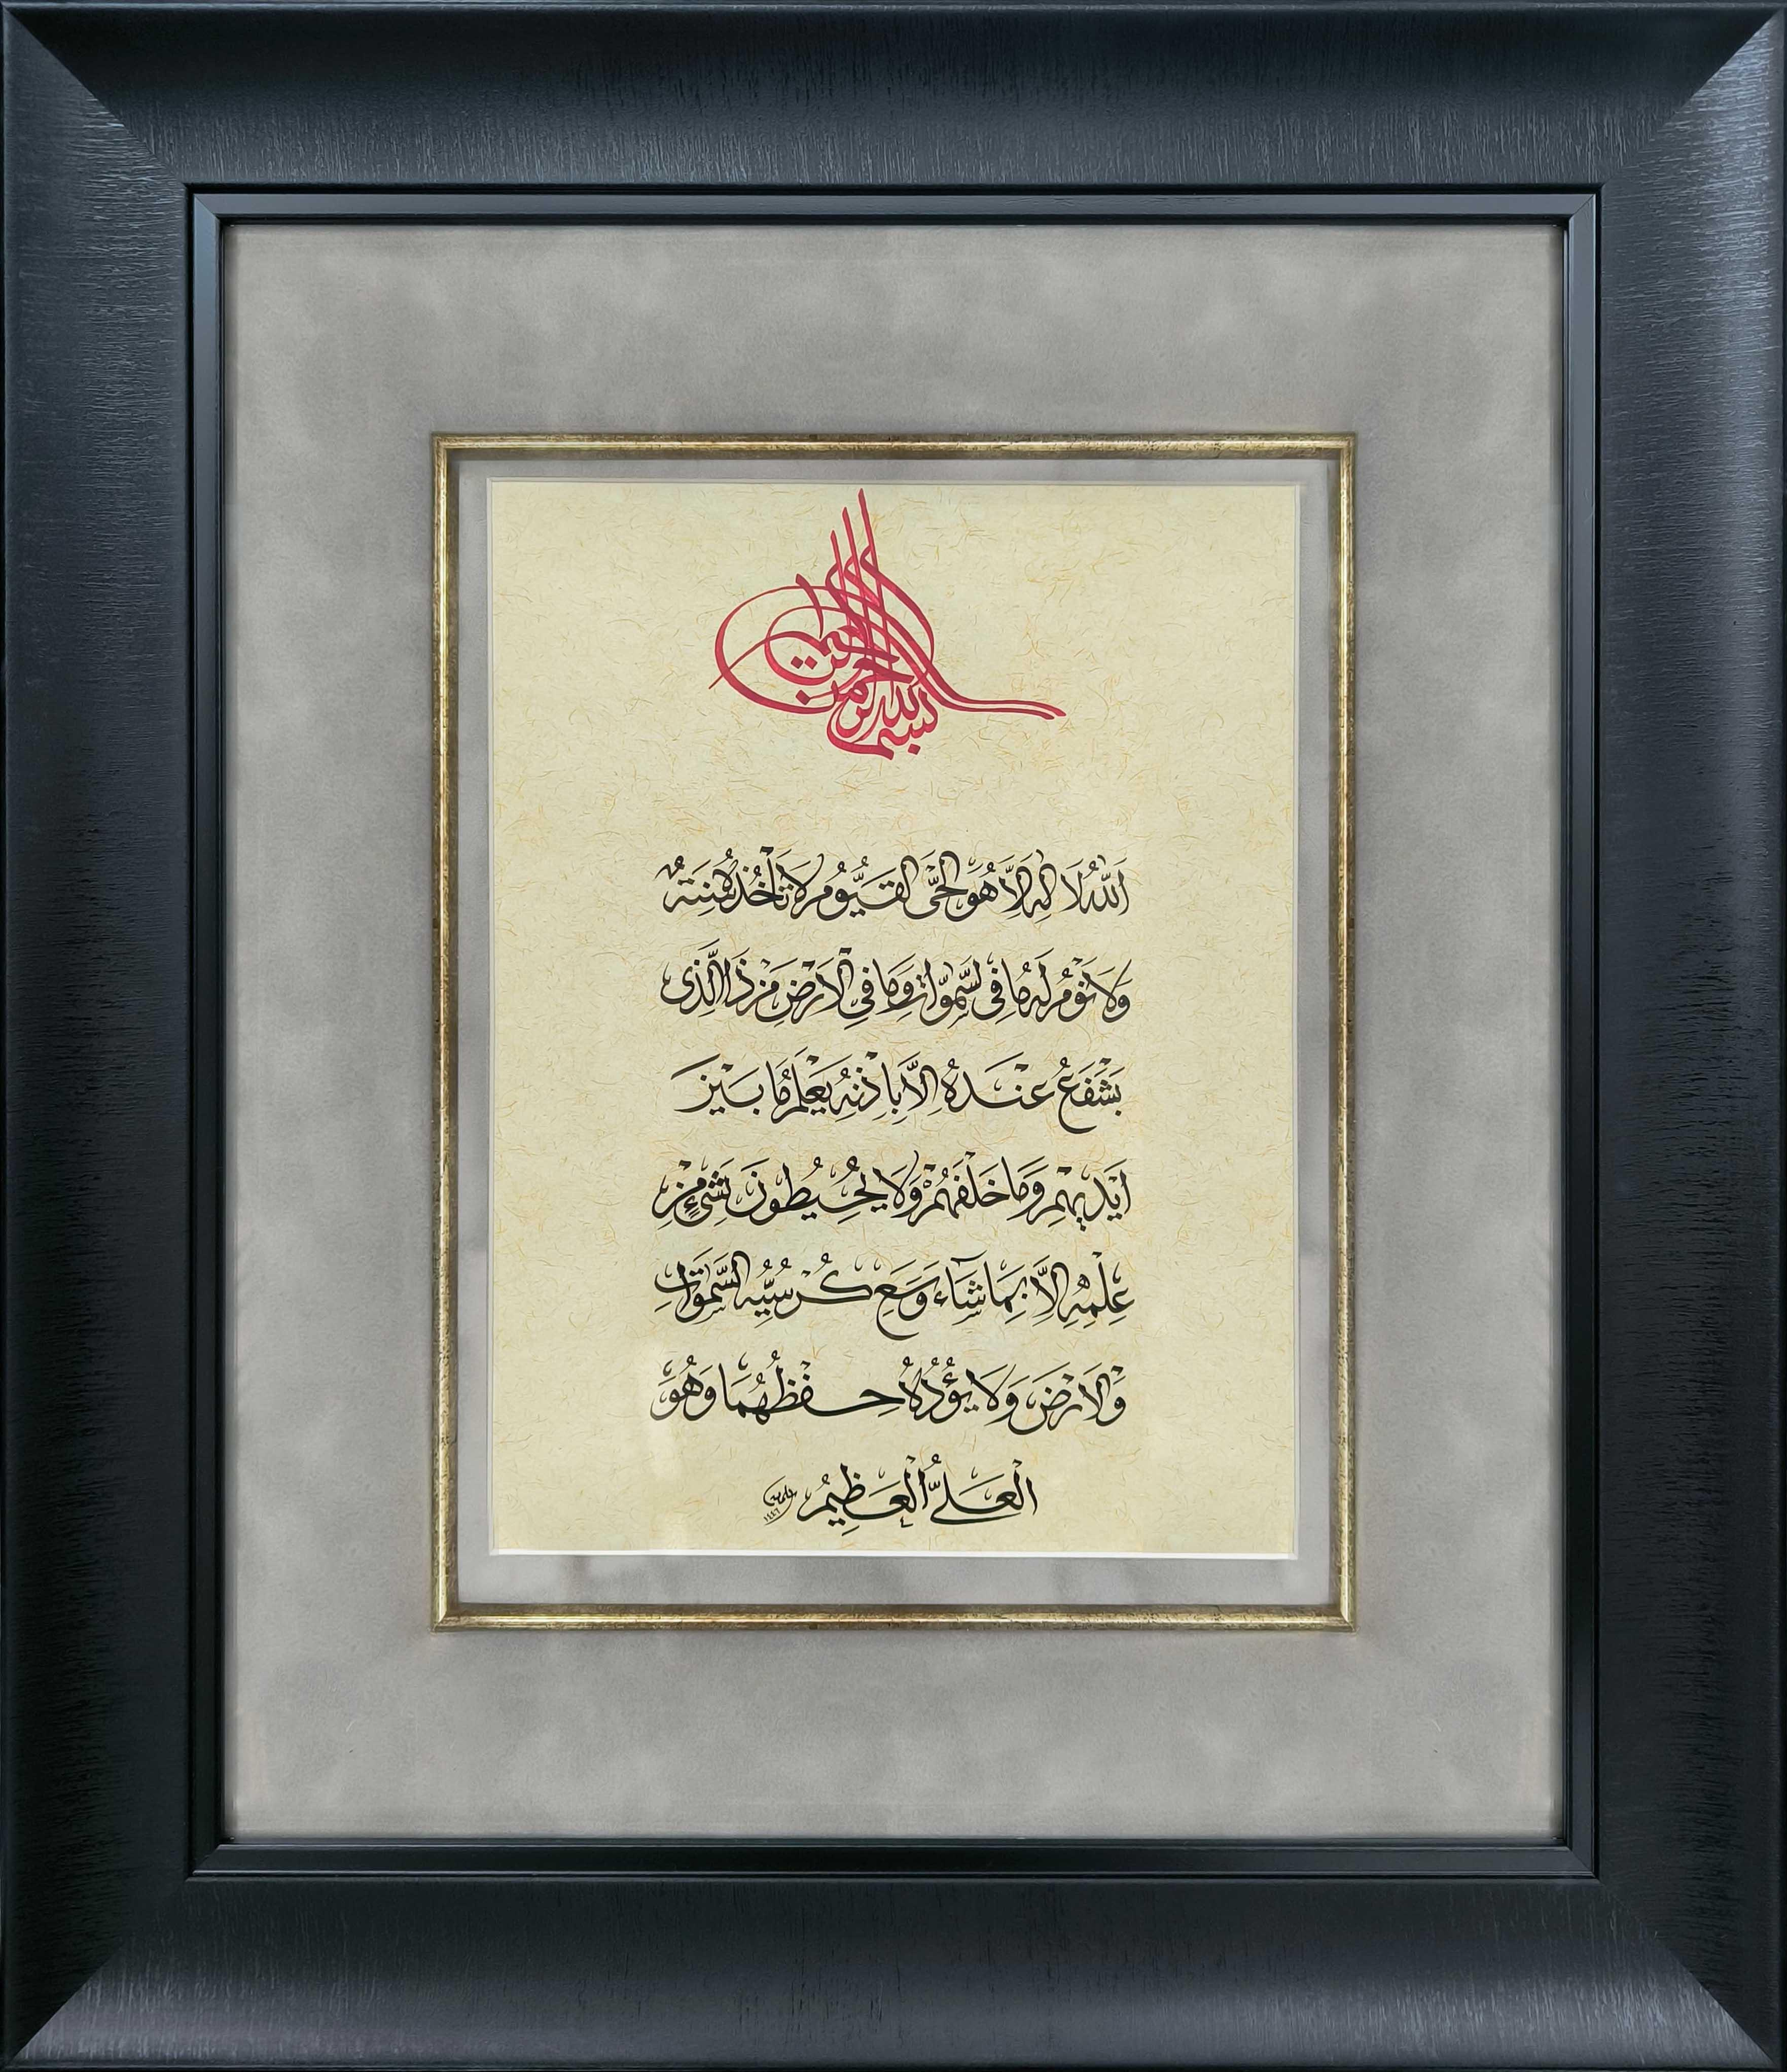 بسم الله الرحمن الرحيم
اَللّٰهُ لَا اِلٰهَ اِلَّا هُوَ الْحَىُّ الْقَيُّومُ لَا تَأْخُذُهُ سِنَةٌ
وَلَا نَوْمٌ لَهُ مَا فِى السَّمٰوَاتِ وَمَا فِى الْاَرْضِ مَنْ ذَا الَّذِى
يَشْفَعُ عِنْدَهُ اِلَّا بِاِذْنِهِ يَعْلَمُ مَا بَيْنَ
اَيْدِيهِمْ وَمَا خَلْفَهُمْ وَلَا يُحِيطُونَ بِشَىْءٍ مِنْ
عِلْمِهِ اِلَّا بِمَا شَاءَ وَسِعَ كُرْسِيُّهُ السَّمٰوَاتِ
وَالْاَرْضَ وَلَا يَؤُدُهُ حِفْظُهُمَا وَهُوَ
الْعَلِىُّ الْعَظِيمُ
١٤٤٦